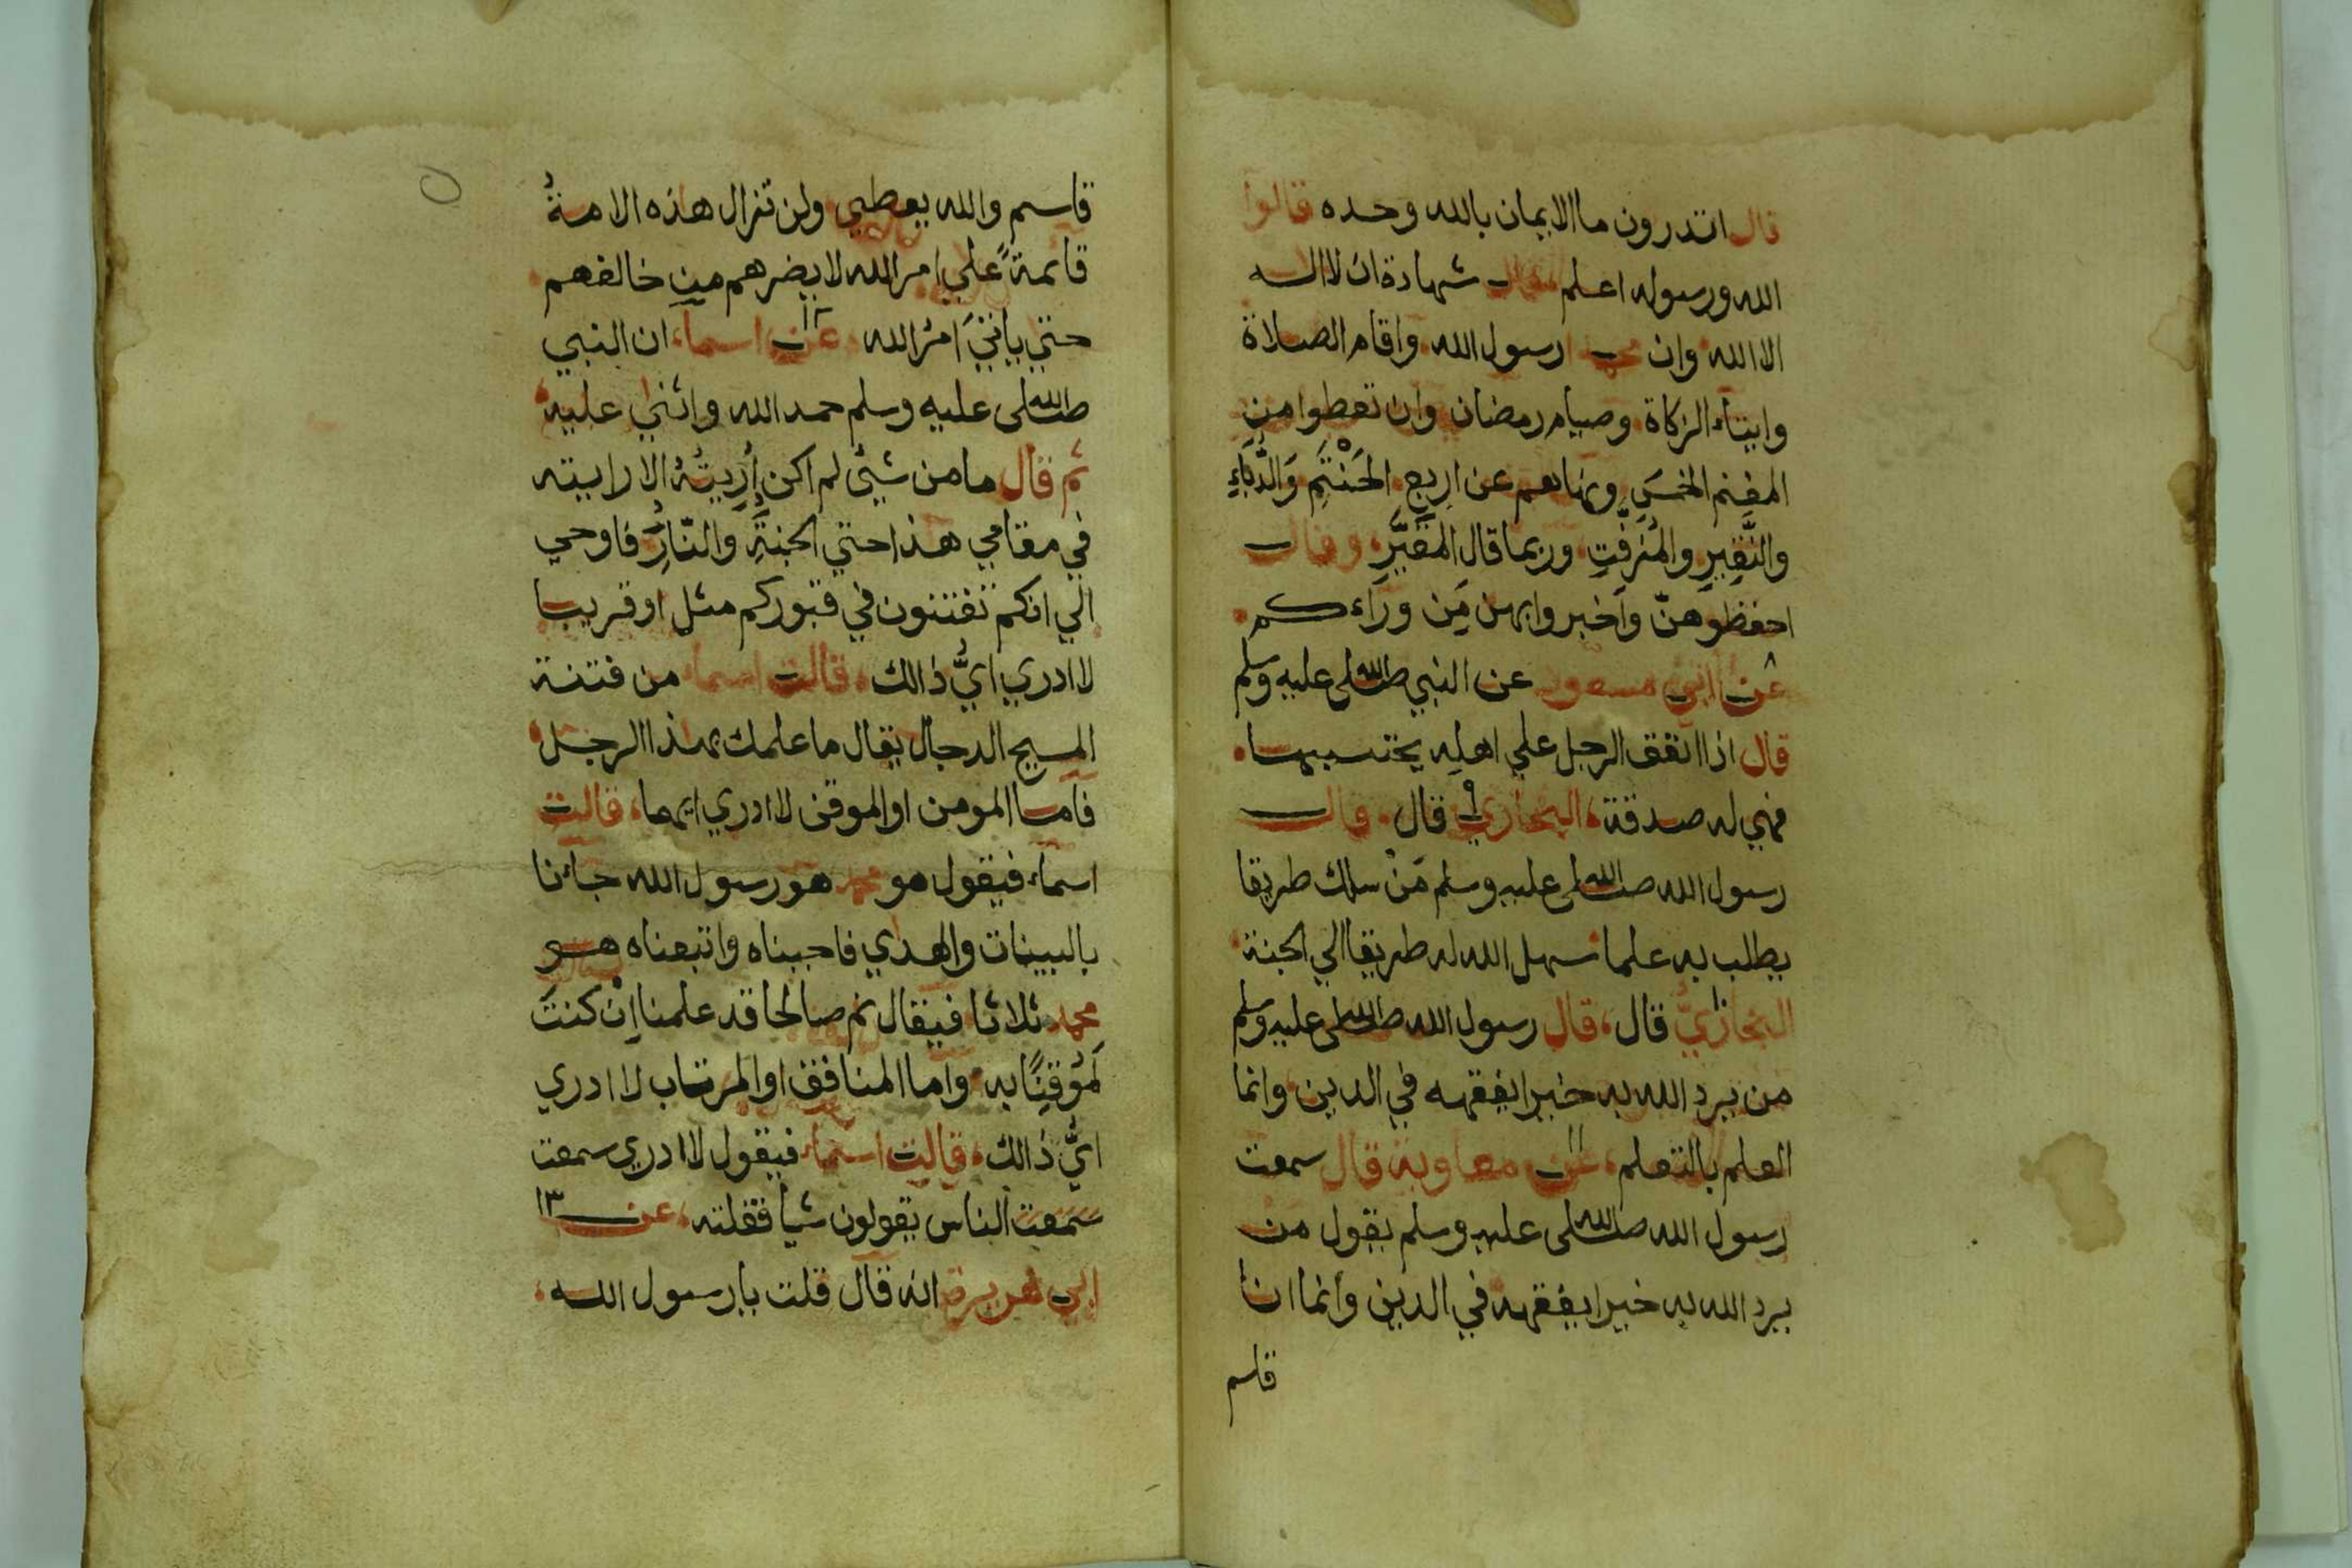 قال اتدرون ما الايمان بالله وحده قالوا
الله ورسوله اعلم قال شهادة ان لا اله
الا الله وان محمدا رسول الله واقام الصلاة
وايتاء الزكاة وصيام رمضان وان تعطوا من
المغنم الخمسَ ونهاهم عن اربع الحَنْتَمِ وَالدُّبَّاءِ
والنَّقِيرِ والمُزفَّتِ وربما قال المقَيَّرِ وقال
احفظوهنّ وأخبروا بهن مَن وراءكم
٨ عن ابي مسعود عن النبي صلى الله عليه وسلم
قال اذا انفق الرجل علي اهله يحتسبها
فهي له صدقة، البخاري ٩ قال قال
رسول الله صلى الله عليه وسلم مَنْ سلك طريقا
يطلب به علما سهل الله له طريقا الي الجنة
البخاريُّ ١٠ قال، قال رسول الله صلى الله عليه وسلم
من يرد الله به خيرا يفقهه في الدين وانما
العلم بالتعلم، عن ١١ معاوية قال سمعت
رسول الله صلى الله عليه وسلم يقول من
يرد الله به خيرا يفقهه في الدين وانما انا
قاسم
قاسم والله يعطي ولن تزال هذه الامةُ
قائمةً علي امر الله لا يضرهم من خالفهم
حتي ياتيَ امرُ الله عن ١٢ اسماء ان النبي
صلى الله عليه وسلم حمد الله واثني عليه
ثم قال ما من شيئ لم اكن أُرِيتُهُ الا رايته
في مقامي هذا حتي الجنةِ والنّارِ فاوحي
الي انكم تفتنون في قبوركم مثل او قريبا
لا ادري ايُّ ذالك، قالت اسماء من فتنة
المسيح الدجال يقال ما علمك بهذا الرجل
فاما المومن او الموقن لا ادري ايهما، قالت
اسماء فيقول هو محمد هو رسول الله جاءنا
بالبينات والهدي فاجبناه واتبعناه هو
محمد ثلاثا فيقال نم صالحا قد علمنا اِنْ كنتَ
لَمُوقِنًا به واما المنافق او المرتاب لا ادري
ايُّ ذالك، قالت اسماء فيقول لا ادري سمعت
سمعت الناس يقولون شيأ فقلته، عن ١٣
ابي هريرة انه قال قلت يا رسول الله،